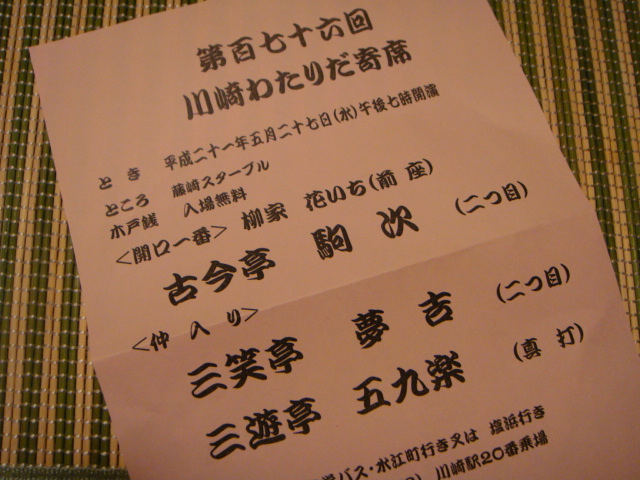 第百七十六回
川崎わたりだ寄席
とき 平成二十一年五月二十七日(水)午後七時開演
ところ 藤崎スターブル
木戸銭 入場無料
<開口一番> 柳家 花いち(前座)
古今亭 駒次 (二つ目)
<仲入り>
三笑亭 夢吉 (二つ目)
三遊亭 五九楽 (真打)
バス・水江町行き又は 塩浜行き
川崎駅20番乗場